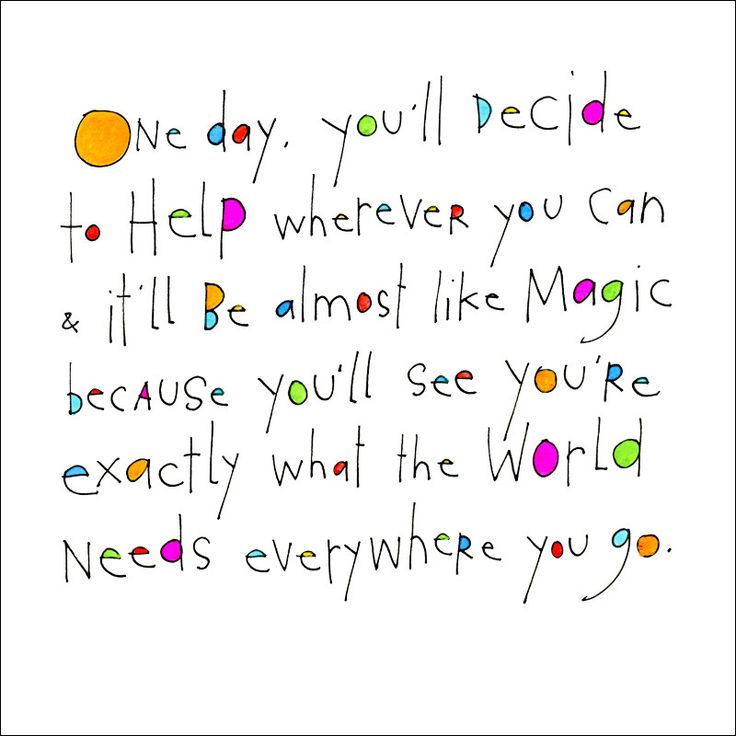 One day, you'll Decide
to Help wherever you can
& it'll Be almost like Magic
because you'll see you're
exactly what the World
Needs everywhere you go.